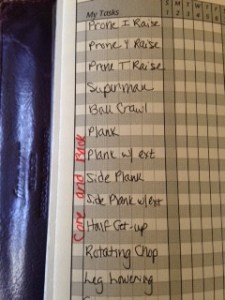 My Tasks
S M T W T F
1 2 3 4 5 6
Prone I Raise
Prone Y Raise
Prone T Raise
Superman
Ball Crawl
Plank
Plank w/ ext
Side Plank
Side Plank w/ext
Half Get-up
Rotating Chop
Leg Lowering
Core and Back